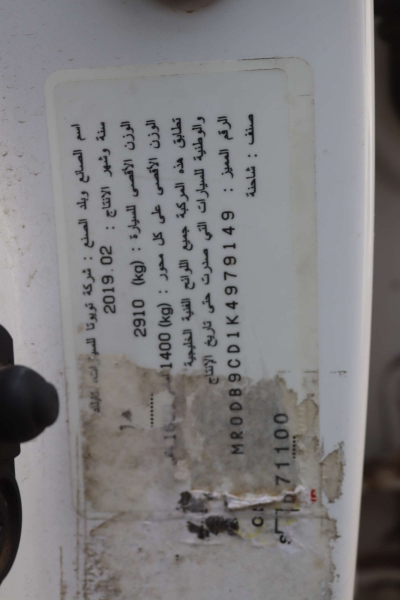 اسم الصانع وبلد الصنع : شركة تويوتا للسيارات،
سنة وشهر الانتاج : 2019.02
الوزن الأقصى للسيارة : 2910 (kg)
الوزن الأقصى على كل محور : 1400(kg)
تطابق هذه المركبة جميع اللوائح الفنية الخليجية
والوطنية للسيارات التي صدرت حتى تاريخ الانتاج
الرقم المميز : MR0DB9CD1K4979149
صنف : شاحنة
71100